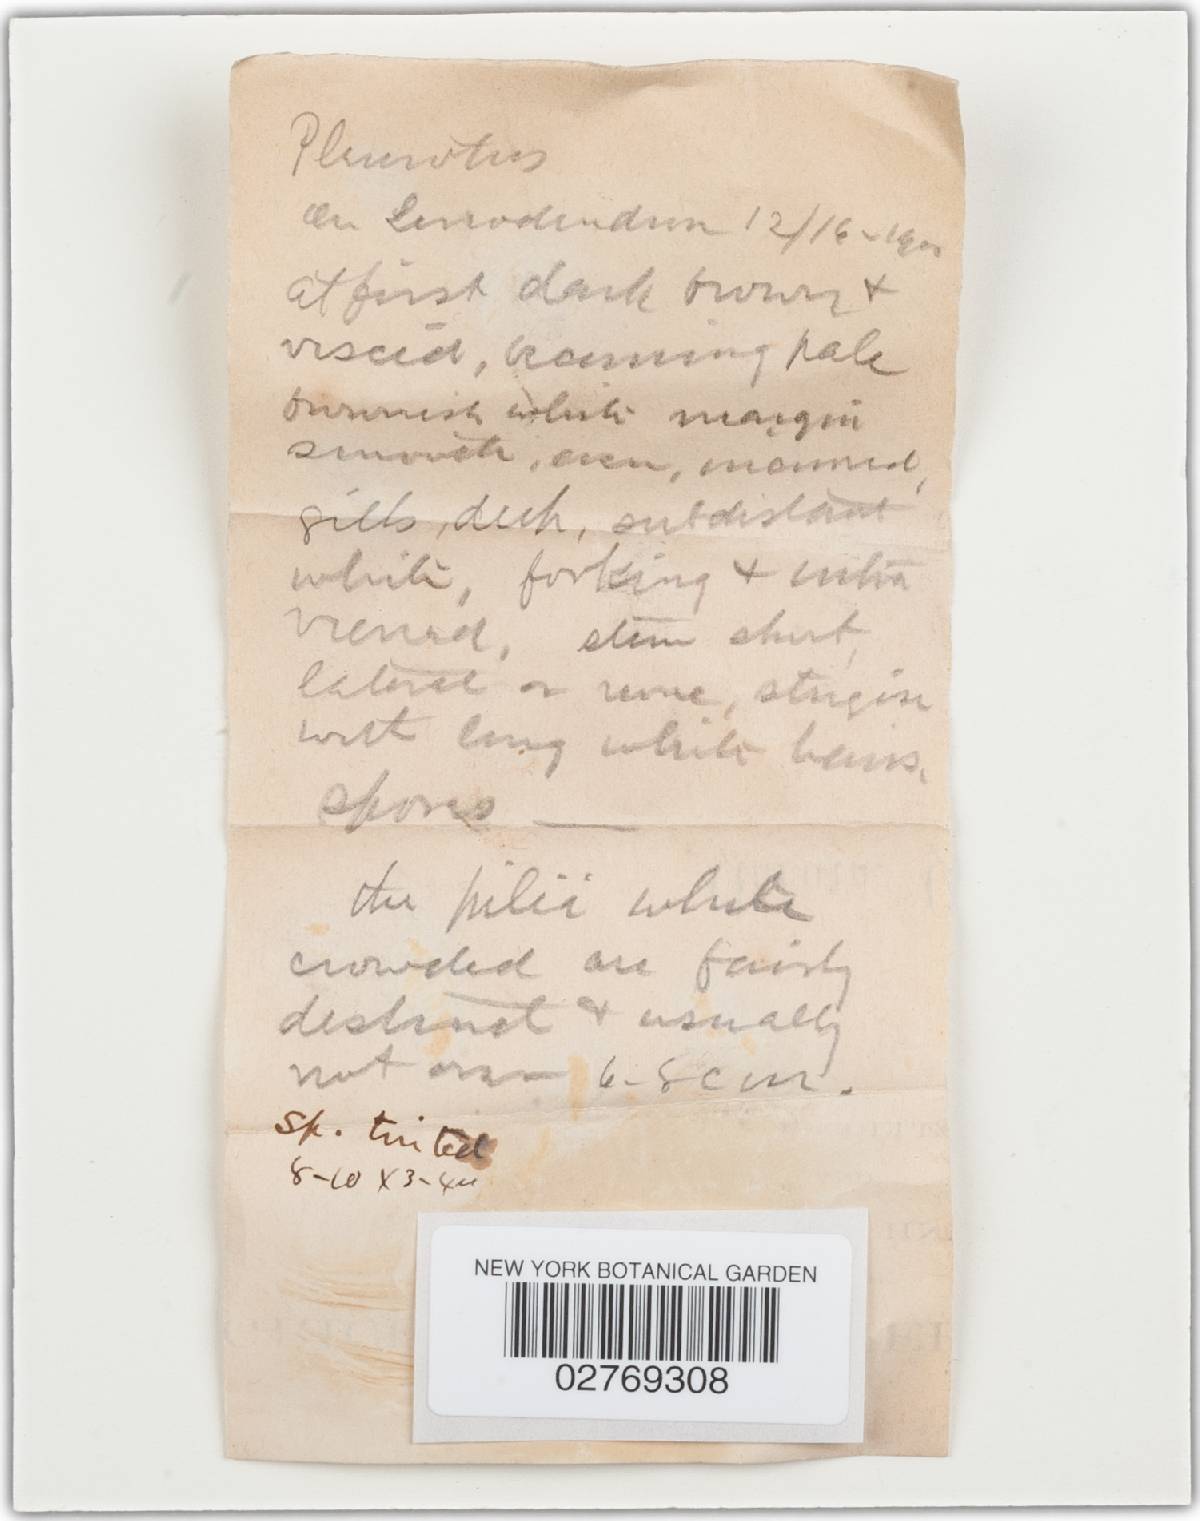 Pleurotus
On Liriodendron 12/16-1900
at first dark brown +
viscid, becoming pale
brownish white margin
smooth, even, incurved,
gills, deep, subdistant
white, forking + intra
viened, stem short,
lateral or none, strigose
with long white hairs.
spores —
the pilei while
crowded are fairly
distinct & usually
not over 6-8 cm.
sp. tinted
8-10 x 3-4u
NEW YORK BOTANICAL GARDEN
02769308